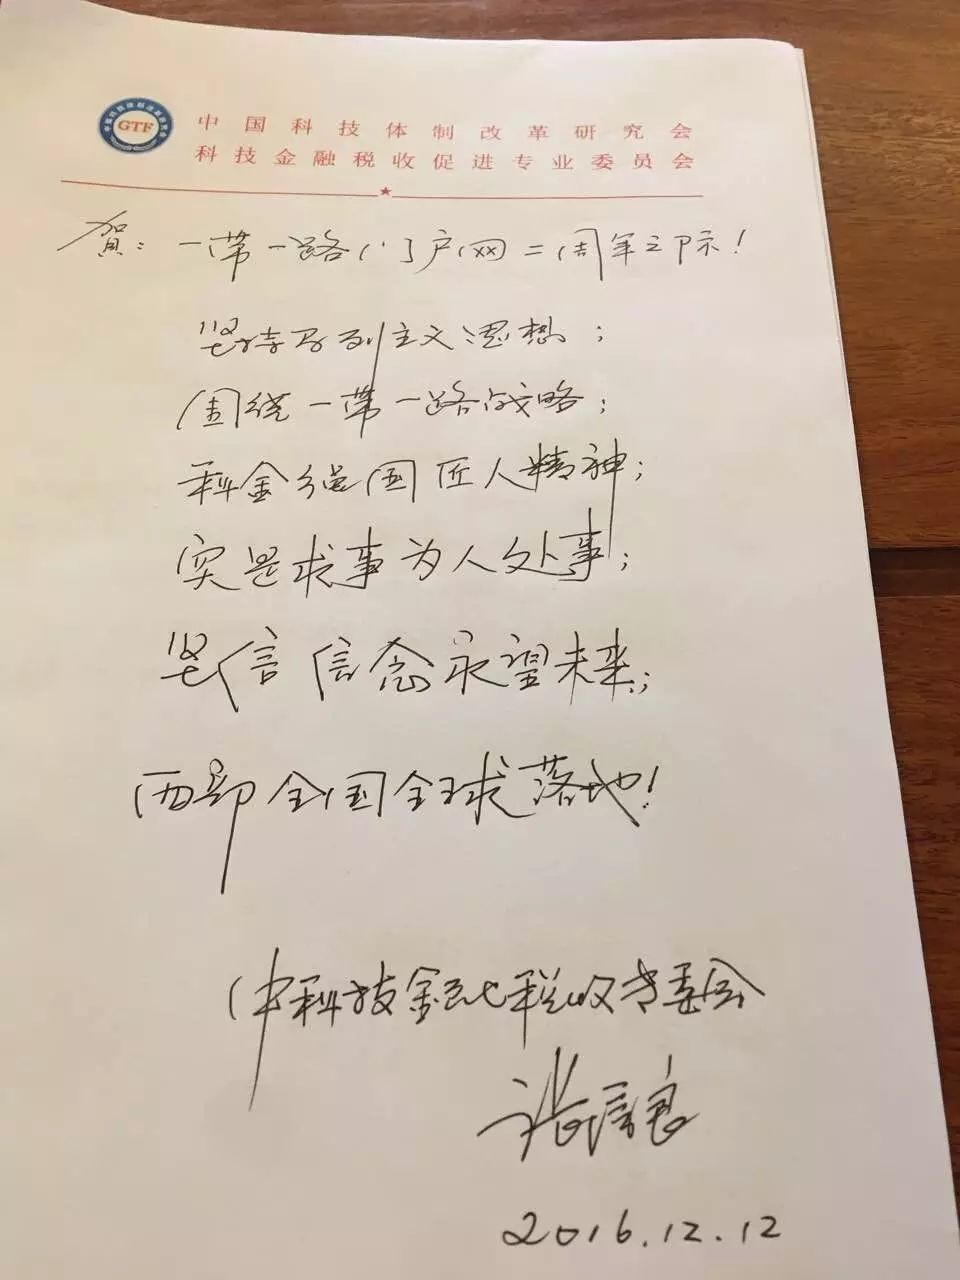 GTF
中国科技体制改革研究会
科技金融税收促进专业委员会
贺：一带一路门户网二周年之际！
坚持马列主义思想；
围绕一带一路战略；
科金强国匠人精神；
实是求事为人处事；
坚信信念永望未来；
西部全国全球落地！
中科技金融税收专委会
2016.12.12